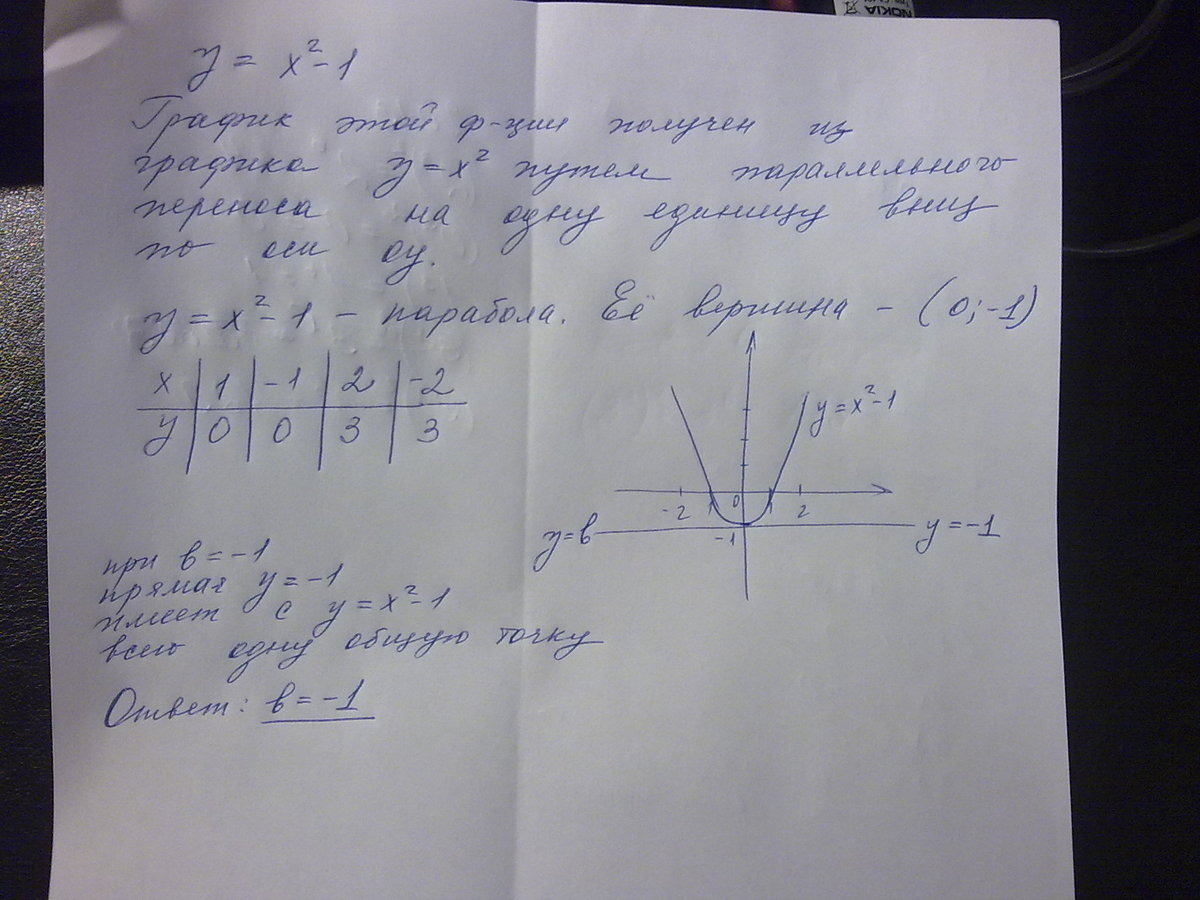 NOKIA
y = x² - 1
График этой ф-ции получен из
графика y = x² путем параллельного
переноса на одну единицу вниз
по оси оу.
y = x² - 1 – парабола. Её вершина – (0; -1)
x | 1 | -1 | 2 | -2
y | 0 | 0 | 3 | 3
y = x² - 1
-2 -1 0 1 2
y = в
-1
y = -1
при в = -1
прямая y = -1
имеет с y = x² - 1
всего одну общую точку
Ответ: в = -1